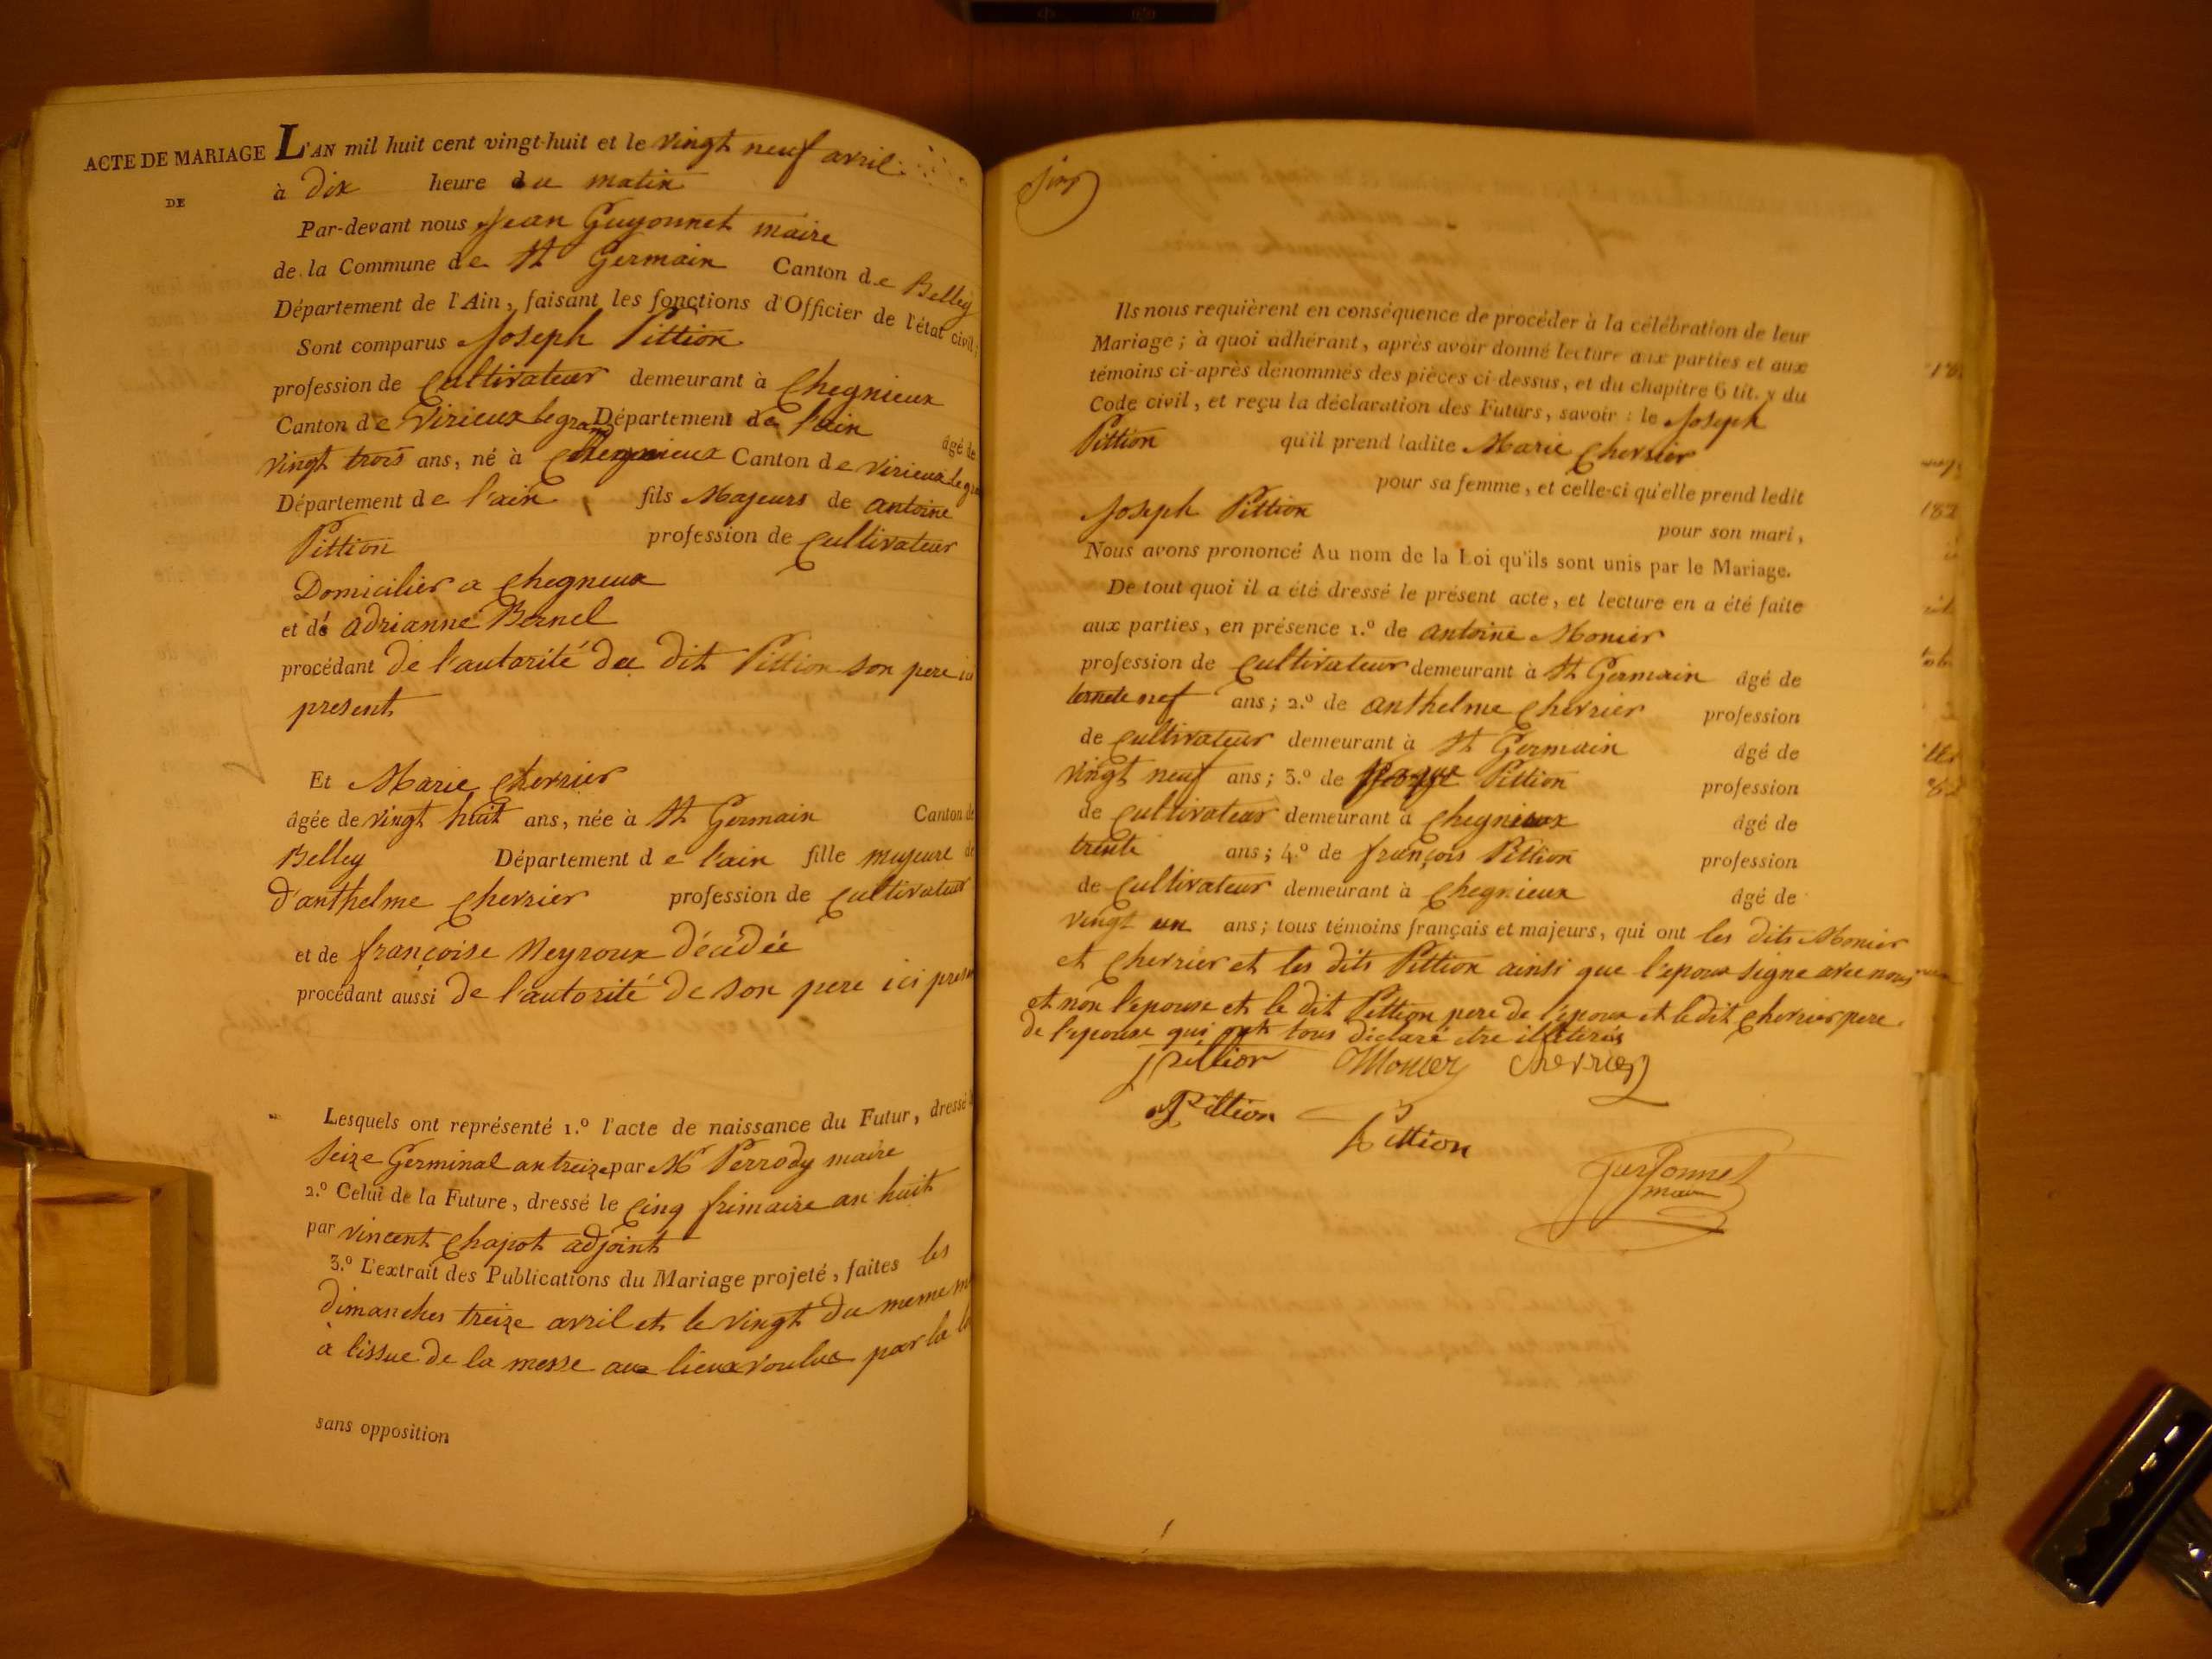 ACTE DE MARIAGE
DE
L'AN mil huit cent vingt-huit et le vingt neuf avril
à dix heure du matin
Par-devant nous Jean Guyonnet maire
de la Commune de St Germain Canton de Belley
Département de l'Ain, faisant les fonctions d'Officier de l'état civil;
Sont comparus Joseph Pittion
profession de Cultivateur demeurant à Chegnieux
Canton de Virieux le grand Département de l'ain âgé de
vingt trois ans, né à Chegnieux Canton de virieux le gra
Département de l'ain, fils Majeurs de antoine
Pittion profession de Cultivateur
Domicilier a Chegneux
et de adrianne Bernel
procédant de l'autorité du dit Pittion son pere ici
present
Et Marie Cherrier
âgée de vingt huit ans, née à St Germain Canton de
Belley Département de l'ain fille majeure de
d'anthelme Cherrier profession de Cultivateur
et de françoise Neyroux décédée
procédant aussi de l'autorité de son pere ici presen
Lesquels ont représenté 1.º l'acte de naissance du Futur, dressé le
Seize Germinal an treize par Mr Perrody maire
2.º Celui de la Future, dressé le Cinq frimaire an huit
par vincent Chapot adjoint
3.º L'extrait des Publications du Mariage projeté, faites les
dimanches treize avril et le vingt du meme m
a l'issue de la messe aux lieux voulus par la lo
sans opposition
Ils nous requièrent en conséquence de procéder à la célébration de leur
Mariage; à quoi adhérant, après avoir donné lecture aux parties et aux
témoins ci-après dénommés des pièces ci dessus, et du chapitre 6 tit. v du
Code civil, et reçu la déclaration des Futurs, savoir: le Joseph
Pittion qu'il prend ladite Marie Cherrier
pour sa femme, et celle-ci qu'elle prend ledit
Joseph Pittion pour son mari,
Nous avons prononcé Au nom de la Loi qu'ils sont unis par le Mariage.
De tout quoi il a été dressé le présent acte, et lecture en a été faite
aux parties, en présence 1.º de antoine Monier
profession de Cultivateur demeurant à St Germain âgé de
nef ans; 2.º de anthelme Cherrier profession
de Cultivateur demeurant à St Germain âgé de
vingt neuf ans; 3.º de Pittion profession
de Cultivateur demeurant à Chegnieux âgé de
trente ans; 4.º de françois Pittion profession
de Cultivateur demeurant à Chegnieux âgé de
vingt un ans; tous témoins français et majeurs, qui ont les dits Monier
et Cherrier et les dits Pittion ainsi que l'epoux signe avec nous
et non l'epouse et le dit Pittion pere de l'epoux et le dit Cherrier pere
de l'epouse qui ont tous déclaré etre illiterés
jpittion Monier Cherrier
Pittion Pittion
Guyonnet
maire